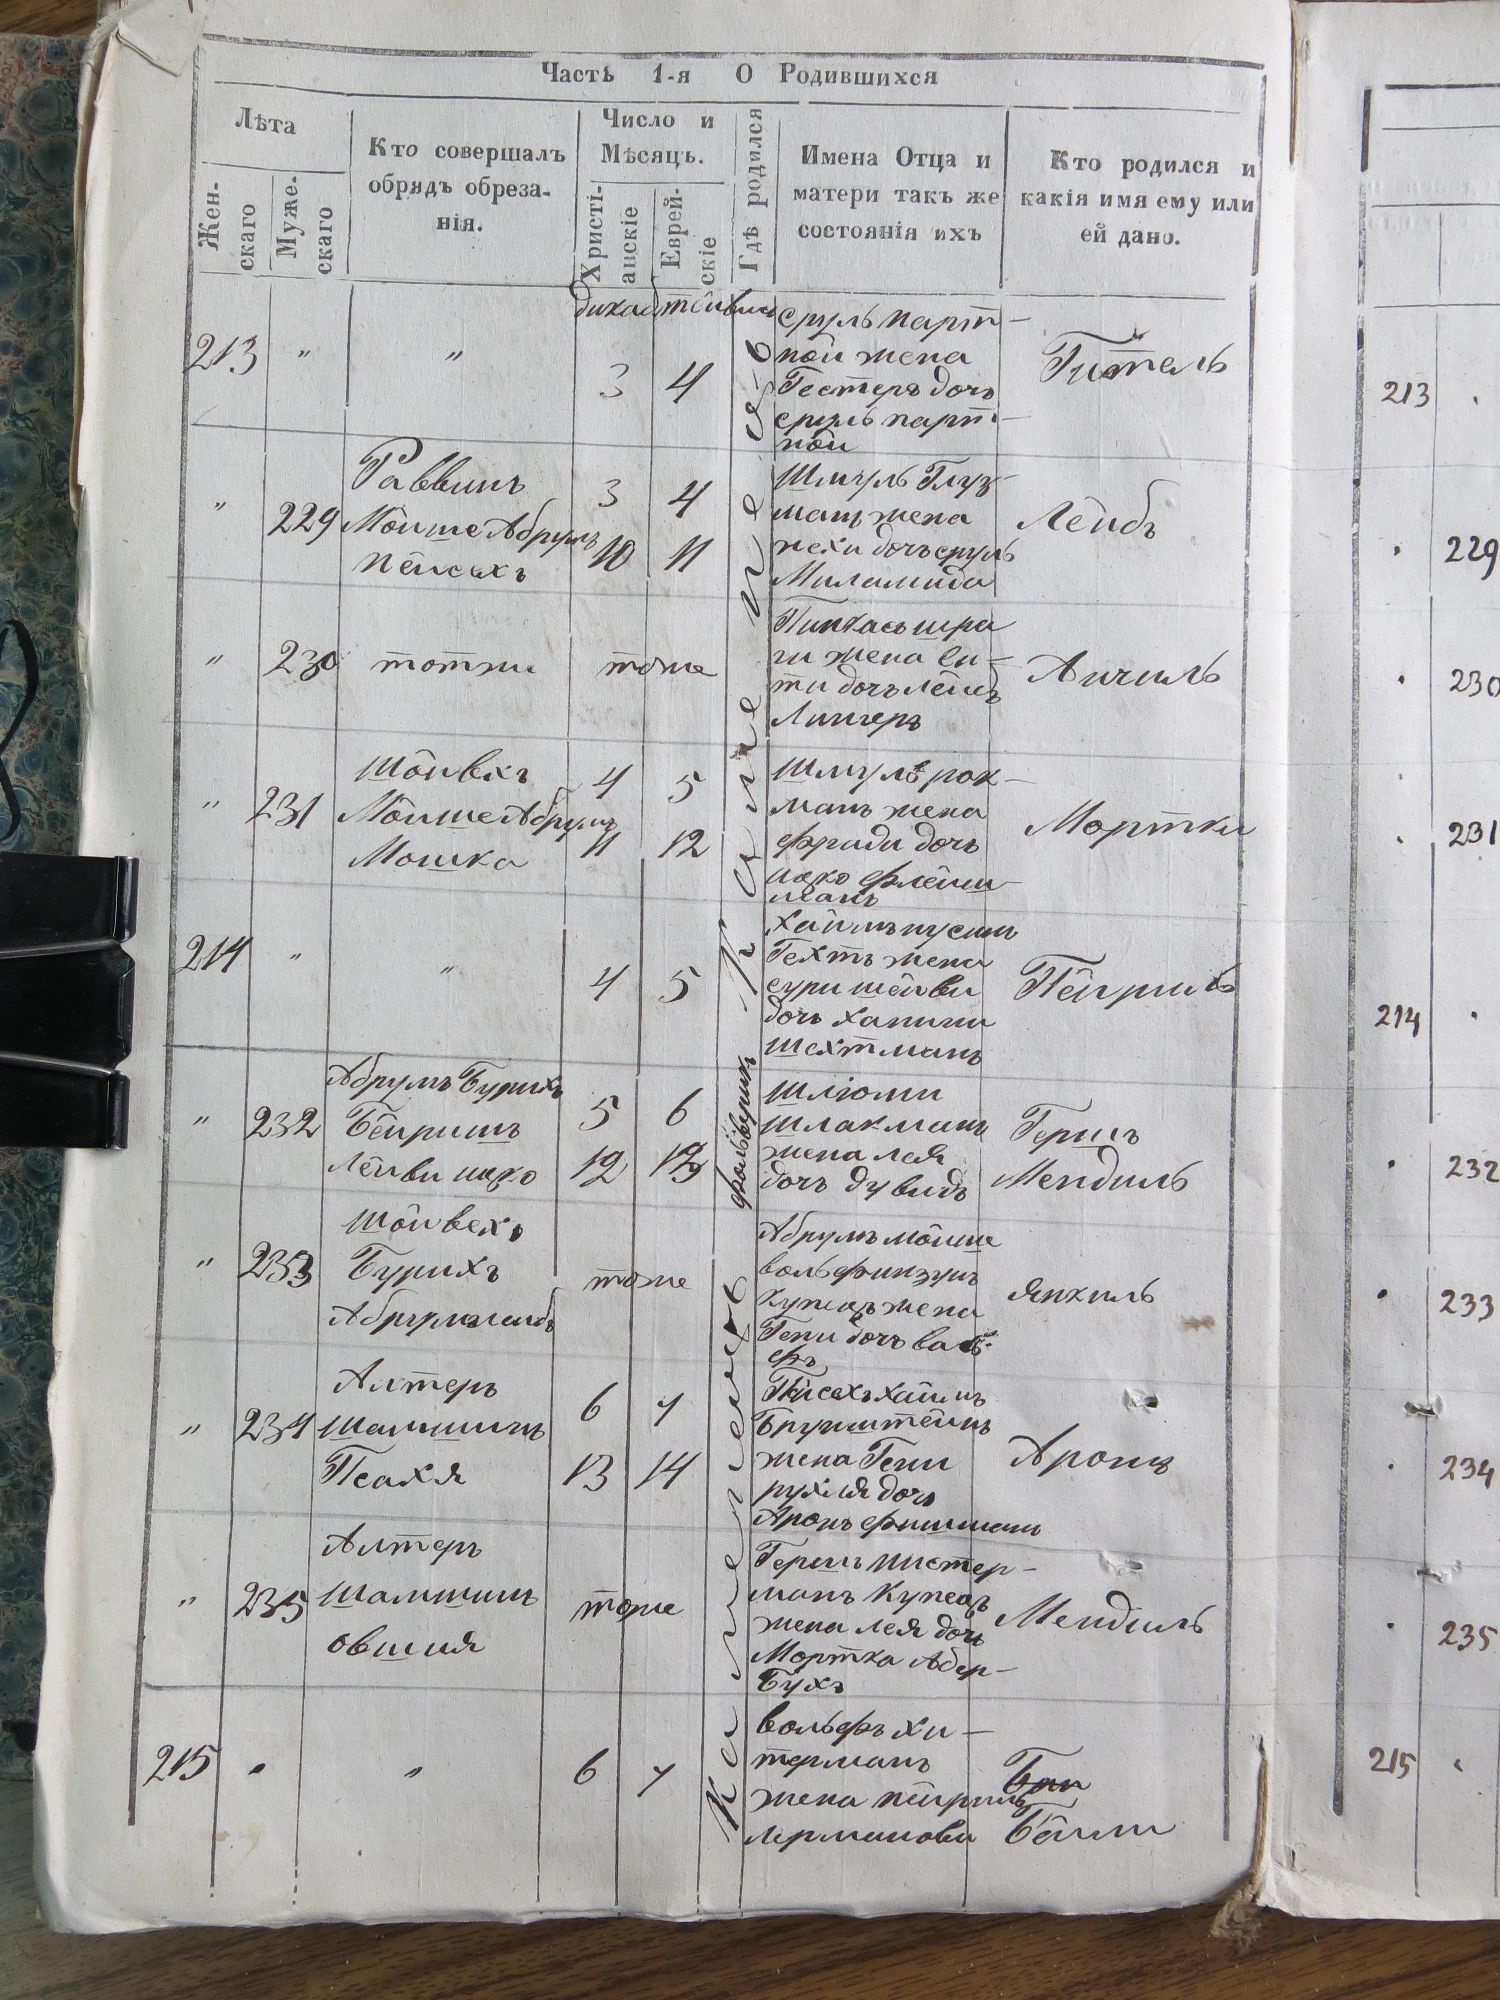 Часть 1-я О Родившихся
Лѣта
Жен-
скаго
Муже-
скаго
Кто совершалъ
обрядъ обреза-
нія.
Число и
Мѣсяцъ.
Христі-
анскіе
Еврей-
скіе
Гдѣ родился
Имена Отца и
матери такъ же
состоянія ихъ
Кто родился и
какія имя ему или
ей дано.
213 " " 3 4
сруль парт-
ной жена
Гестеръ дочь
сруль парт-
ной
Гительь
" 229
Раввинъ
Мойше Абрумъ
Пейсахъ
3 4
10 11
Шмуль Глуз-
манъ жена
нехи дочь сруль
Миламида
Лейбъ
" 230 тотже тоже
Пинхасъ шра
ги жена ен-
ти дочь лейбъ
Лингеръ
Анчиль
" 231
Шойвхъ
Мойше Абрумъ
Мошка
4 5
11 12
Шмуль рох-
манъ жена
фради дочь
ицко флейш-
манъ
Мортки
214 " " 4 5
Гехтъ жена
сури шейви
дочь ханини
Шехтманъ
Пейриль
" 232
Абрумъ Бурихъ
Бейришъ
Лейви ицко
5 6
12 13
фольверикъ
Шліоми
шлакманъ
жена лея
дочь дувидъ
Гершъ
Мендиль
" 233
Шойвехъ
Бурихъ
Абрумлейбъ
тоже
Абрумъ мойше
вольфинзунъ
Купецъ жена
Гени дочь воль-
фъ
Янкиль
" 234
Алтеръ
Шамшинъ
Псахя
6 7
13 14
Пейсехъ хаимъ
Брунштейнъ
жена Гени
рухля дочь
Аронъ фишманъ
Аронъ
" 235
Алтеръ
Шамшинъ
овшия
тоже
Гершъ Мистер-
манъ Купецъ
жена лея дочь
Мортка Абер-
Бухъ
Мендиль
215 " " 6 7
Каменецъ
вольфъ хи-
терманъ
жена пейриль
лермановы
Бейли
213
229
230
231
214
232
233
234
235
215